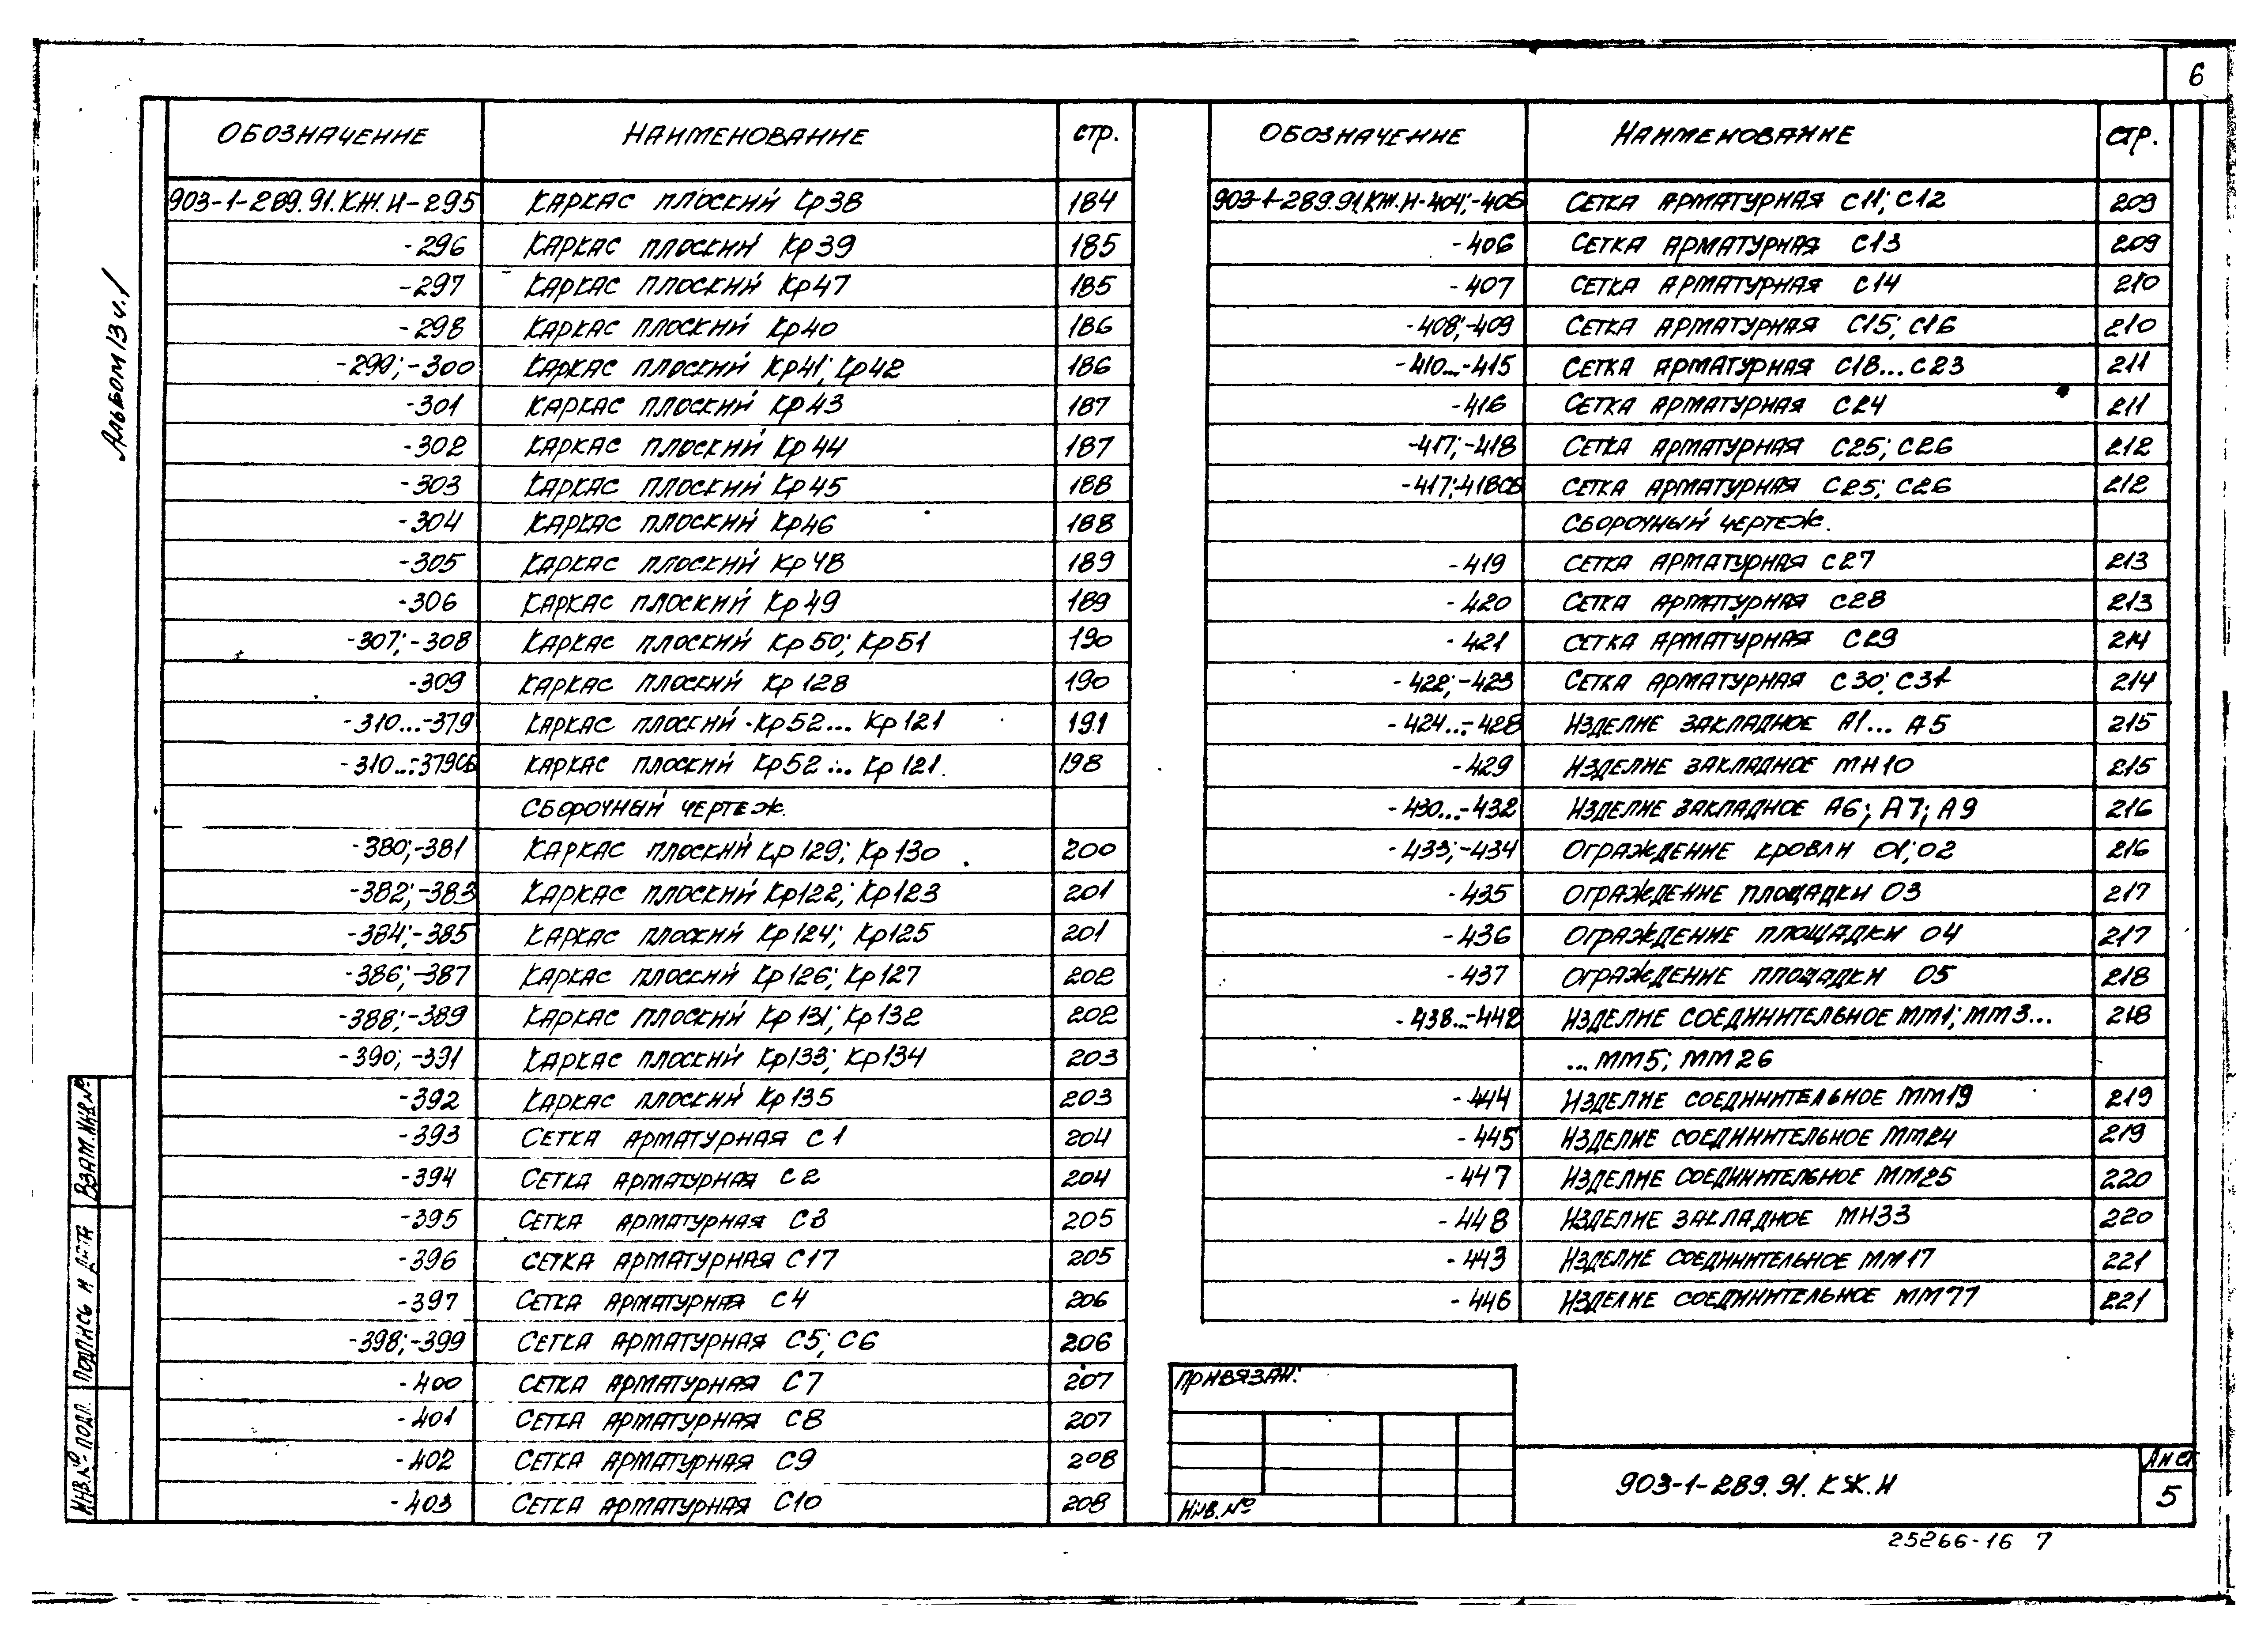 6
Альбом 13 ч.1
ОБОЗНАЧЕНИЕ НАИМЕНОВАНИЕ стр.
903-1-289.91.КЖ.И-295 КАРКАС ПЛОСКИЙ Кр38 184
-296 КАРКАС ПЛОСКИЙ Кр39 185
-297 КАРКАС ПЛОСКИЙ Кр47 185
-298 КАРКАС ПЛОСКИЙ Кр40 186
-299; -300 КАРКАС ПЛОСКИЙ Кр41; Кр42 186
-301 КАРКАС ПЛОСКИЙ Кр43 187
-302 КАРКАС ПЛОСКИЙ Кр44 187
-303 КАРКАС ПЛОСКИЙ Кр45 188
-304 КАРКАС ПЛОСКИЙ Кр46 188
-305 КАРКАС ПЛОСКИЙ Кр48 189
-306 КАРКАС ПЛОСКИЙ Кр49 189
-307; -308 КАРКАС ПЛОСКИЙ Кр50; Кр51 190
-309 КАРКАС ПЛОСКИЙ Кр 128 190
-310...-379 КАРКАС ПЛОСКИЙ Кр52... Кр121 191
-310...-379СБ КАРКАС ПЛОСКИЙ Кр52... Кр121. 198
СБОРОЧНЫЙ ЧЕРТЕЖ.
-380; -381 КАРКАС ПЛОСКИЙ Кр129; Кр130 200
-382; -383 КАРКАС ПЛОСКИЙ Кр122; Кр123 201
-384; -385 КАРКАС ПЛОСКИЙ Кр124; Кр125 201
-386; -387 КАРКАС ПЛОСКИЙ Кр126; Кр127 202
-388; -389 КАРКАС ПЛОСКИЙ Кр131; Кр132 202
-390; -391 КАРКАС ПЛОСКИЙ Кр133; Кр134 203
-392 КАРКАС ПЛОСКИЙ Кр135 203
-393 СЕТКА АРМАТУРНАЯ С1 204
-394 СЕТКА АРМАТУРНАЯ С2 204
-395 СЕТКА АРМАТУРНАЯ С3 205
-396 СЕТКА АРМАТУРНАЯ С17 205
-397 СЕТКА АРМАТУРНАЯ С4 206
-398; -399 СЕТКА АРМАТУРНАЯ С5; С6 206
-400 СЕТКА АРМАТУРНАЯ С7 207
-401 СЕТКА АРМАТУРНАЯ С8 207
-402 СЕТКА АРМАТУРНАЯ С9 208
-403 СЕТКА АРМАТУРНАЯ С10 208
ОБОЗНАЧЕНИЕ НАИМЕНОВАНИЕ СТР.
903-1-289.91.КЖ.И-404; -405 СЕТКА АРМАТУРНАЯ С11; С12 209
-406 СЕТКА АРМАТУРНАЯ С13 209
-407 СЕТКА АРМАТУРНАЯ С14 210
-408; -409 СЕТКА АРМАТУРНАЯ С15; С16 210
-410...-415 СЕТКА АРМАТУРНАЯ С18... С23 211
-416 СЕТКА АРМАТУРНАЯ С24 211
-417; -418 СЕТКА АРМАТУРНАЯ С25; С26 212
-417; -418СБ СЕТКА АРМАТУРНАЯ С25; С26 212
СБОРОЧНЫЙ ЧЕРТЕЖ.
-419 СЕТКА АРМАТУРНАЯ С27 213
-420 СЕТКА АРМАТУРНАЯ С28 213
-421 СЕТКА АРМАТУРНАЯ С29 214
-422; -423 СЕТКА АРМАТУРНАЯ С30; С31 214
-424...-428 ИЗДЕЛИЕ ЗАКЛАДНОЕ А1... А5 215
-429 ИЗДЕЛИЕ ЗАКЛАДНОЕ МН10 215
-430...-432 ИЗДЕЛИЕ ЗАКЛАДНОЕ А6; А7; А9 216
-433; -434 ОГРАЖДЕНИЕ КРОВЛИ О1; О2 216
-435 ОГРАЖДЕНИЕ ПЛОЩАДКИ О3 217
-436 ОГРАЖДЕНИЕ ПЛОЩАДКИ О4 217
-437 ОГРАЖДЕНИЕ ПЛОЩАДКИ О5 218
-438...-442 ИЗДЕЛИЕ СОЕДИНИТЕЛЬНОЕ ММ1; ММ3... 218
... ММ5; ММ26
-444 ИЗДЕЛИЕ СОЕДИНИТЕЛЬНОЕ ММ19 219
-445 ИЗДЕЛИЕ СОЕДИНИТЕЛЬНОЕ ММ24 219
-447 ИЗДЕЛИЕ СОЕДИНИТЕЛЬНОЕ ММ25 220
-448 ИЗДЕЛИЕ ЗАКЛАДНОЕ МН33 220
-443 ИЗДЕЛИЕ СОЕДИНИТЕЛЬНОЕ ММ17 221
-446 ИЗДЕЛИЕ СОЕДИНИТЕЛЬНОЕ ММ77 221
ПРИВЯЗАН:
ИНВ.№
903-1-289.91.КЖ.И
Лист
5
ИНВ.№ ПОДЛ. ПОДПИСЬ И ДАТА ВЗАМ.ИНВ.№
25266-16 7